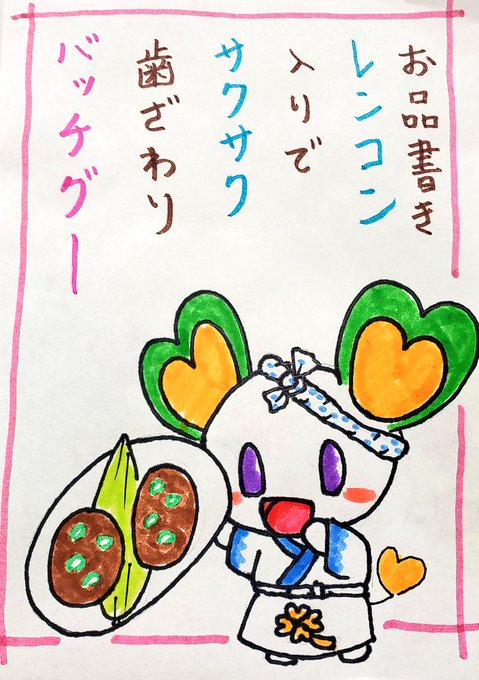 お品書き
レンコン
入りで
サクサク
歯ざわり
バッチグー